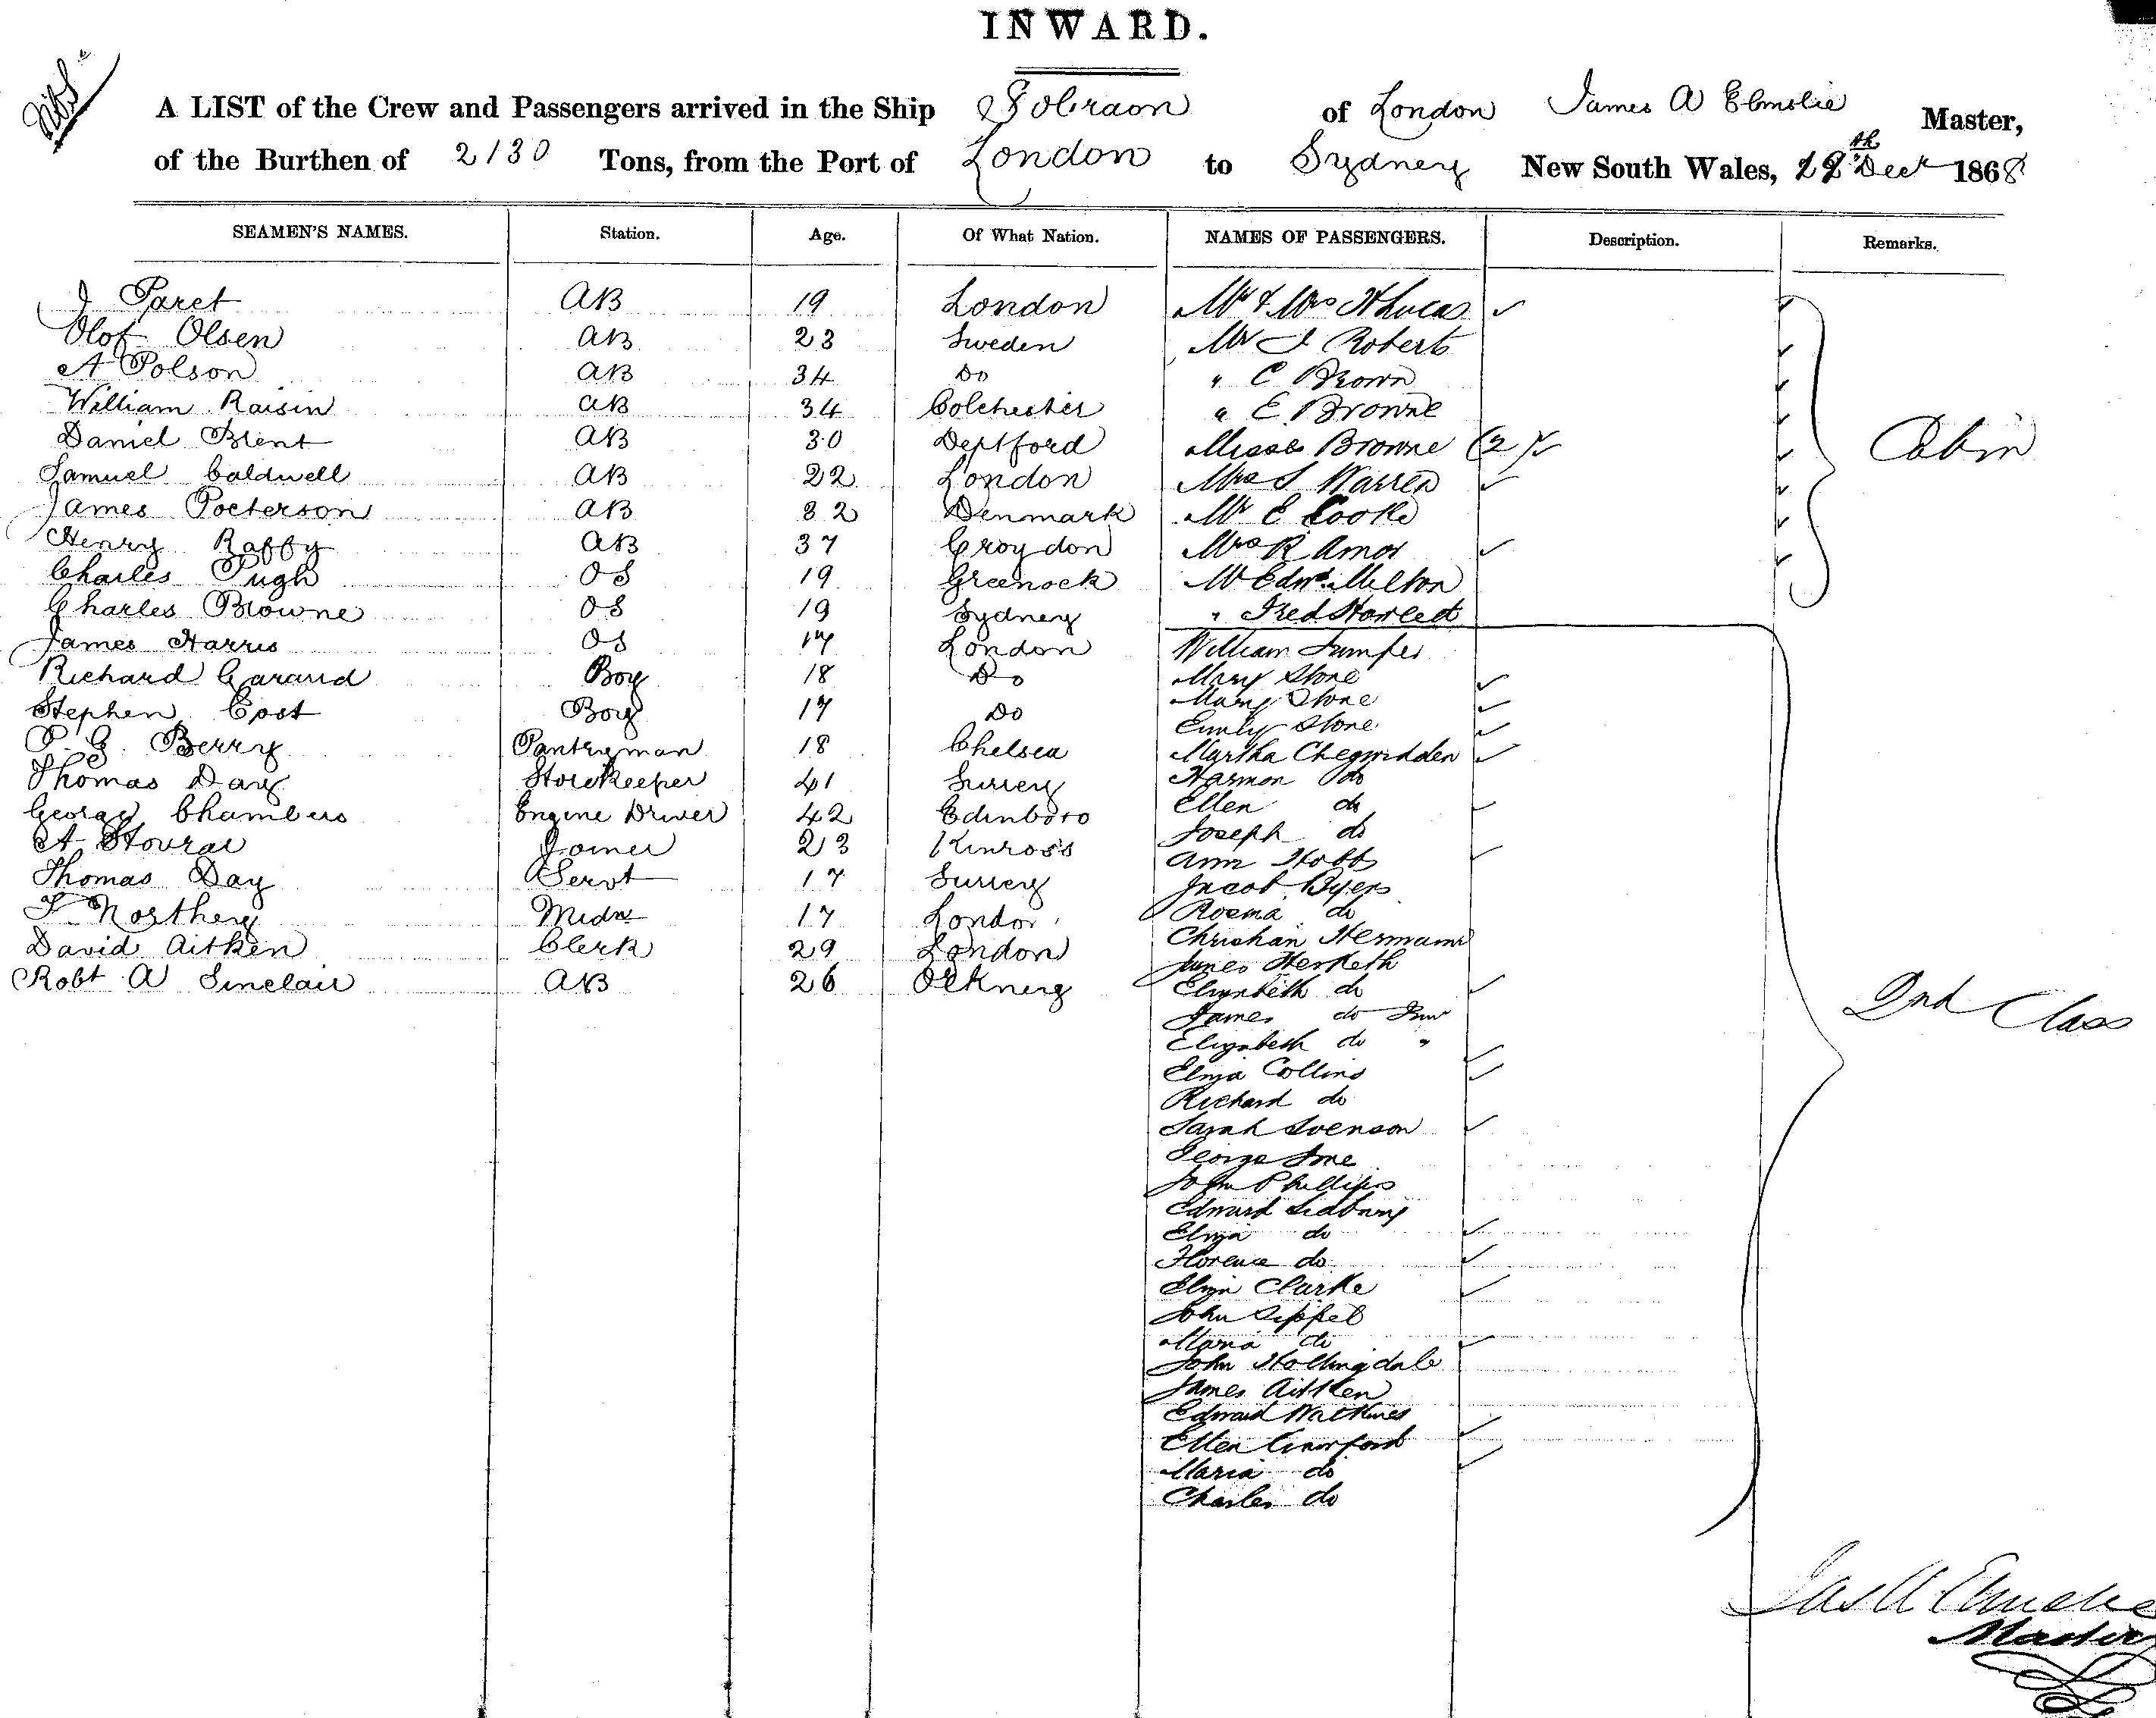 INWARD.
A LIST of the Crew and Passengers arrived in the Ship Sobraon of London James A Elmslie Master,
of the Burthen of 2130 Tons, from the Port of London to Sydney New South Wales, Decr 1868
SEAMEN'S NAMES. Station. Age. Of What Nation. NAMES OF PASSENGERS. Description. Remarks.
J Paret AB 19 London Mr & Mrs H Lucas
Olof Olsen AB 23 Sweden Mr J Roberts
A Polson AB 34 Do " C Brown
William Raisin AB 34 Colchester " E Browne
Daniel Brent AB 30 Deptford Misses Browne (2) Cabin
Samuel Caldwell AB 22 London Mrs S Warren
James Poeterson AB 32 Denmark Mr E Cooke
Henry Raffy AB 37 Croydon Mrs R Amos
Charles Pugh OS 19 Greenock Mr Edwd Milton
Charles Browne OS 19 Sydney " Fred Howlett
James Harris OS 17 London William
Richard Garaud Boy 18 Do Mary Stone
Stephen Cost Boy 17 Do Mary Stone
Emily Stone
P. G. Berry Pantryman 18 Chelsea Martha Chegwidden
Thomas Day Storekeeper 41 Surrey Harmon do
George Chambers Engine Driver 42 Edinboro Ellen do
A Joiner 23 Kinross Joseph do
Ann Hobbs
Thomas Day Servt 17 Surrey Jacob Byers
T Northey Midn 17 London do
David Aitken Clerk 29 London Christian Hermann
James Hesketh
Robt A Sinclair AB 26 Orkney Elizabeth do
James do Junr
Elizabeth do "
2nd Class
Eliza Collins
Richard do
Sarah Svenson
George
John Phillips
Edward Sidbury
Eliza do
Florence do
Eliza Clarke
John Sippel
Maria do
John Hollingdale
James Aitken
Edward Watkins
Ellen Crawford
Maria do
Charles do
Jas A Elmslie
Master